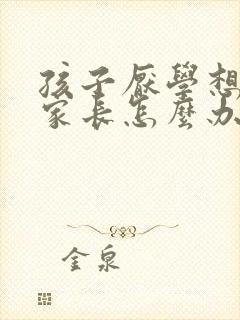 孩子厭學想
家長怎麼办
金泉